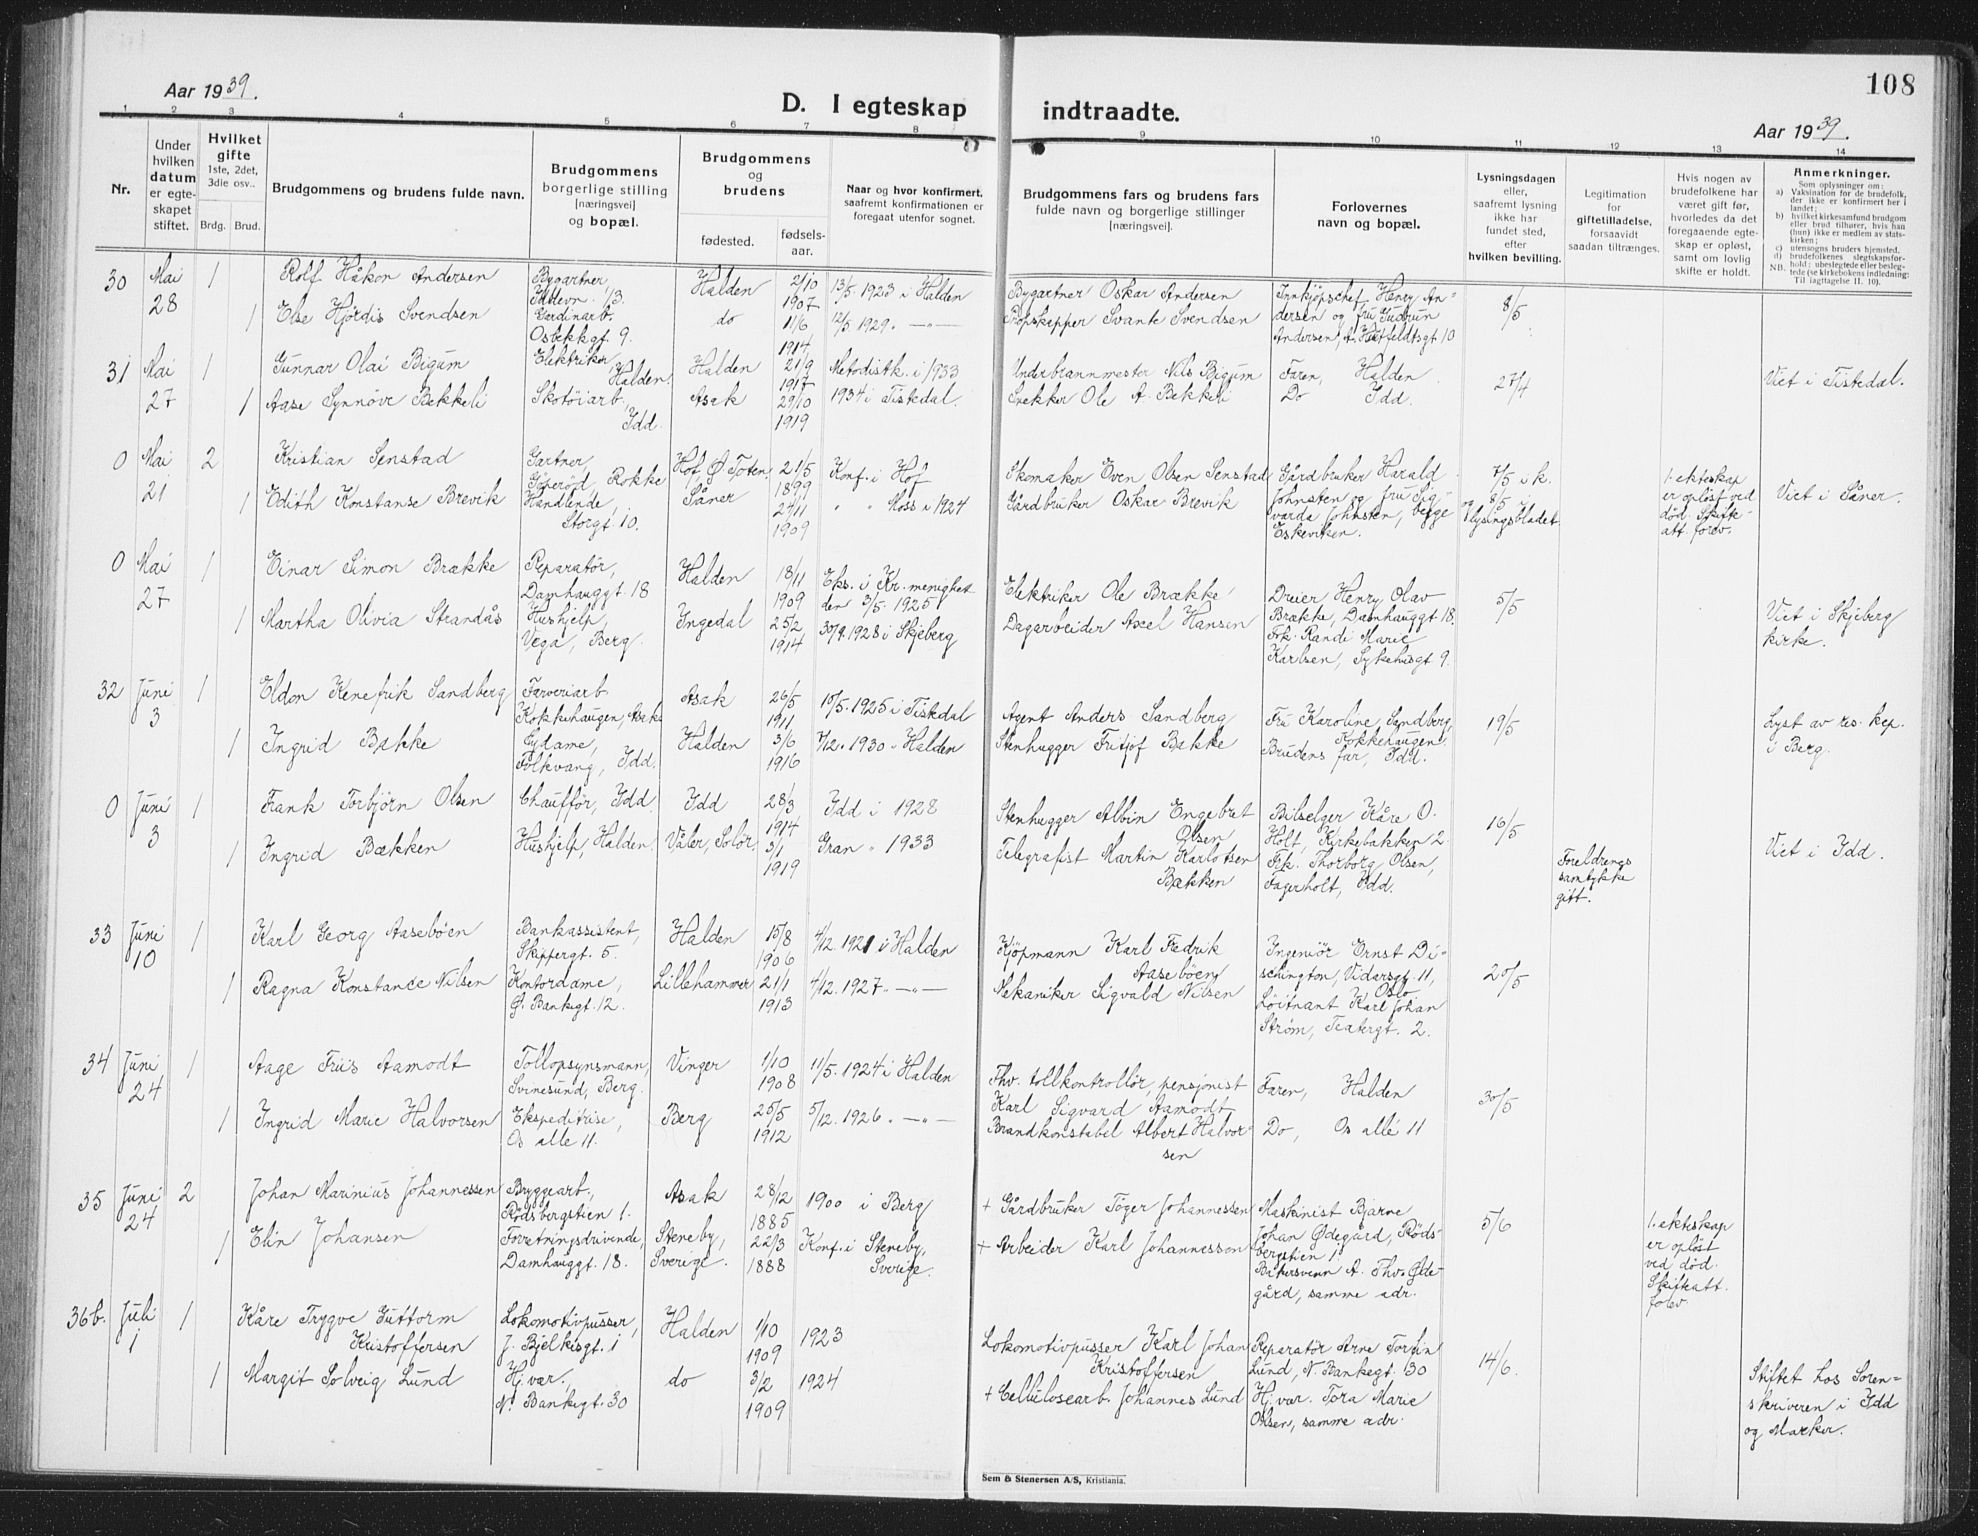 108
Aar 1939.
D. I egteskap indtraadte.
Aar 1939.
1 2 3 4 5 6 7 8 9 10 11 12 13 14
Nr.
Under hvilken datum er egteskapet stiftet.
Hvilket gifte 1ste, 2det, 3die osv..
Brdg. Brud.
Brudgommens og brudens fulde navn.
Brudgommens borgerlige stilling [næringsvei] og bopæl.
Brudgommens og brudens
fødested.
fødselsaar.
Naar og hvor konfirmert, saafremt konfirmationen er foregaat utenfor sognet.
Brudgommens fars og brudens fars fulde navn og borgerlige stillinger [næringsvei].
Forlovernes navn og bopæl.
Lysningsdagen eller, saafremt lysning ikke har fundet sted, efter hvilken bevilling.
Legitimation for giftetilladelse, forsaavidt saadan tiltrænges.
Hvis nogen av brudefolkene har været gift før, hvorledes da det foregaaende egteskap er opløst, samt om lovlig skifte er holdt.
Anmerkninger.
Som oplysninger om:
a) Vaksination for de brudefolk, der ikke er konfirmert her i landet;
b) hvilket kirkesamfund brudgom eller brud tilhører, hvis han (hun) ikke er medlem av statskirken;
c) utensogns bruders hjemsted.
d) brudefolkenes slegtskapsforhold; ubeslegtede eller beslegtede (se kirkebokens indledning: Til iagttagelse II. 10).
NB.
30 Mai 28 1 Rolf Håkon Andersen Bygartner, 13. Halden 2/10 1907 13/5 1923 i Halden Bygartner Oskar Andersen Innkjøpschef Henry Andersen og fru Gudrun Andersen, A. Huitfeldtsgt 10 8/5
1 Else Hjørdis Svendsen Gardinarb. Osbekkgt. 9. do 11/6 1914 12/5 1929 " — " — Propskipper Svante Svendsen
31 Mai 27 1 Gunnar Olai Bigum Elektriker, Halden. Halden 21/9 1917 Metodistk. i 1933 Underbrannmester Nils Bigum Faren, Halden 27/4 Viet i Tistedal.
1 Aase Synnøve Bekkeli Skotøiarb., Idd. Asak 29/10 1919 1934 i Tistedal. Snekker Ole A. Bekkeli Do Idd.
0 Mai 21 2 Kristian Senstad Gartner, Gåperød, Rokke Hof, Ø. Toten 21/5 1899 Konf. i Hof Skomaker Even Olsen Senstad Gårdbruker Harald Johnsten og fru Sigvarda Johnsten, begge Eskeviken. 7/5 i k. og 8/5 i lysingsbladet. 1. ekteskap er opløst ved død. Skifteatt. forev. Viet i Såner.
1 Edith Konstanse Brevik Handlende, Storgt. 10. Såner 24/11 1909 " " Moss i 1924 Gårdbruker Oskar Brevik
0 Mai 27 1 Einar Simon Brække Reparatør, Damhauggt. 18 Halden 18/11 1909 Eks. i Kr. menighet den 3/5. 1925 Elektriker Ole Brække Dreier Henry Olav Brække, Damhauggt. 18. Frk. Randi Marie Karlsen, Sykehusgt 9. 5/5 Viet i Skjeberg kirke.
1 Martha Olivia Strandås Hushjelp, Vega, Berg. Ingedal 25/2 1914 30/9. 1928 i Skjeberg Dagarbeider Axel Hansen
32 Juni 3 1 Eldon Kenefrik Sandberg Farveriarb. Kokkehaugen, Asak Asak 26/5 1911 10/5. 1925 i Tistedal Agent Anders Sandberg Fru Karoline Sandberg, Kokkehaugen. Brudens far, Idd. 19/5 Lyst av res. kap. i Berg.
1 Ingrid Bakke Sydame, Folkvang, Idd. Halden 3/6 1916 7/12. 1930 " Halden Stenhugger Fritjof Bakke
0 Juni 3 1 Frank Torbjørn Olsen Chaufför, Idd Idd 28/3 1914 Idd i 1928 Stenhugger Albin Engebret Olsen Bilselger Kåre O. Holt, Kirkebakken 2. Frk. Thorborg Olsen, Fagerholt, Idd. 16/5 Foreldrenes samtykke gitt. Viet i Idd.
1 Ingrid Bækken Hushjelp, Halden Våler, Solør, 3/1 1919 Gran " 1933 Telegrafist Martin Karlotsen Bækken
33 Juni 10 1 Karl Georg Aasebøen Bankassistent, Skippergt. 5. Halden 15/8 1906 4/12. 1921 i Halden Kjöpmann Karl Fredrik Aasebøen Ingeniör Ernst Dischington, Vidarsgt. 11, Oslo Löitnant Karl Johan Strøm, Teatergt. 2. 20/5
1 Ragna Konstance Nilsen Kontordame, Ø. Bankegt. 12. Lillehammer 21/1 1913 4/12. 1927 " — " — Mekaniker Sigvald Nilsen
34 Juni 24 1 Aage Friis Aamodt Tollopsynsmann, Svinesund, Berg. Vinger 1/10 1908 11/5. 1924 i Halden Fhv. tollkontrollör, pensjonist Karl Sigvard Aamodt Faren, Halden 30/5
1 Ingrid Marie Halvorsen Ekspeditrise, Os alle 11. Berg 25/5 1912 5/12. 1926 " — " — Brandkonstabel Albert Halvorsen Do, Os allé 11
35 Juni 24 2 Johan Marinius Johannessen Bryggearb., Rødsbergstien 1. Asak 28/12 1885 1900 i Berg + Gårdbruker Töger Johannessen Maskinist Bjarne Johan Ødegård, Rødsbergstien 1. Bakersvenn A. Thv. Ødegård, samme adr. 5/6 1. ekteskap er opløst ved død. Skifteatt. forev.
1 Elin Johansen Forretningsdrivende, Damhauggt. 18. Steneby, Sverige. 22/3 1888 Konf. i Steneby, Sverige. + Arbeider Karl Johannesson
36b. Juli 1 1 Kåre Trygve Guttorm Kristoffersen Lokomotivpusser, J. Bjelkesgt. 1 Halden 1/10 1909 1923 Lokomotivpusser Karl Johan Kristoffersen Reparatør Arne Torfin Lund, N. Bankegt. 30 Hj. vær. Tora Marie Olsen, samme adr. 14/6. Stiftet hos Sorenskriveren i Idd og Marker.
1 Margit Solveig Lund Hj. vær., N. Bankegt. 30 do 3/2 1909 1924 + Cellulosearb. Johannes Lund
Sem & Stenersen A/S, Kristiania.